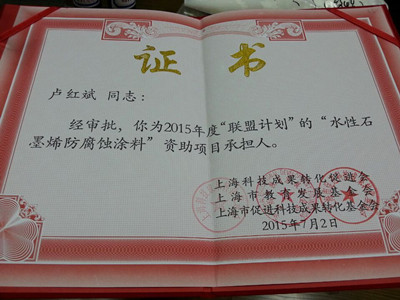 证书
卢红斌 同志：
经审批，你为2015年度“联盟计划”的“水性石
墨烯防腐蚀涂料”资助项目承担人。
上海科技成果转化促进会
上海市教育发展基金会
上海市促进科技成果转化基金会
2015年7月2日